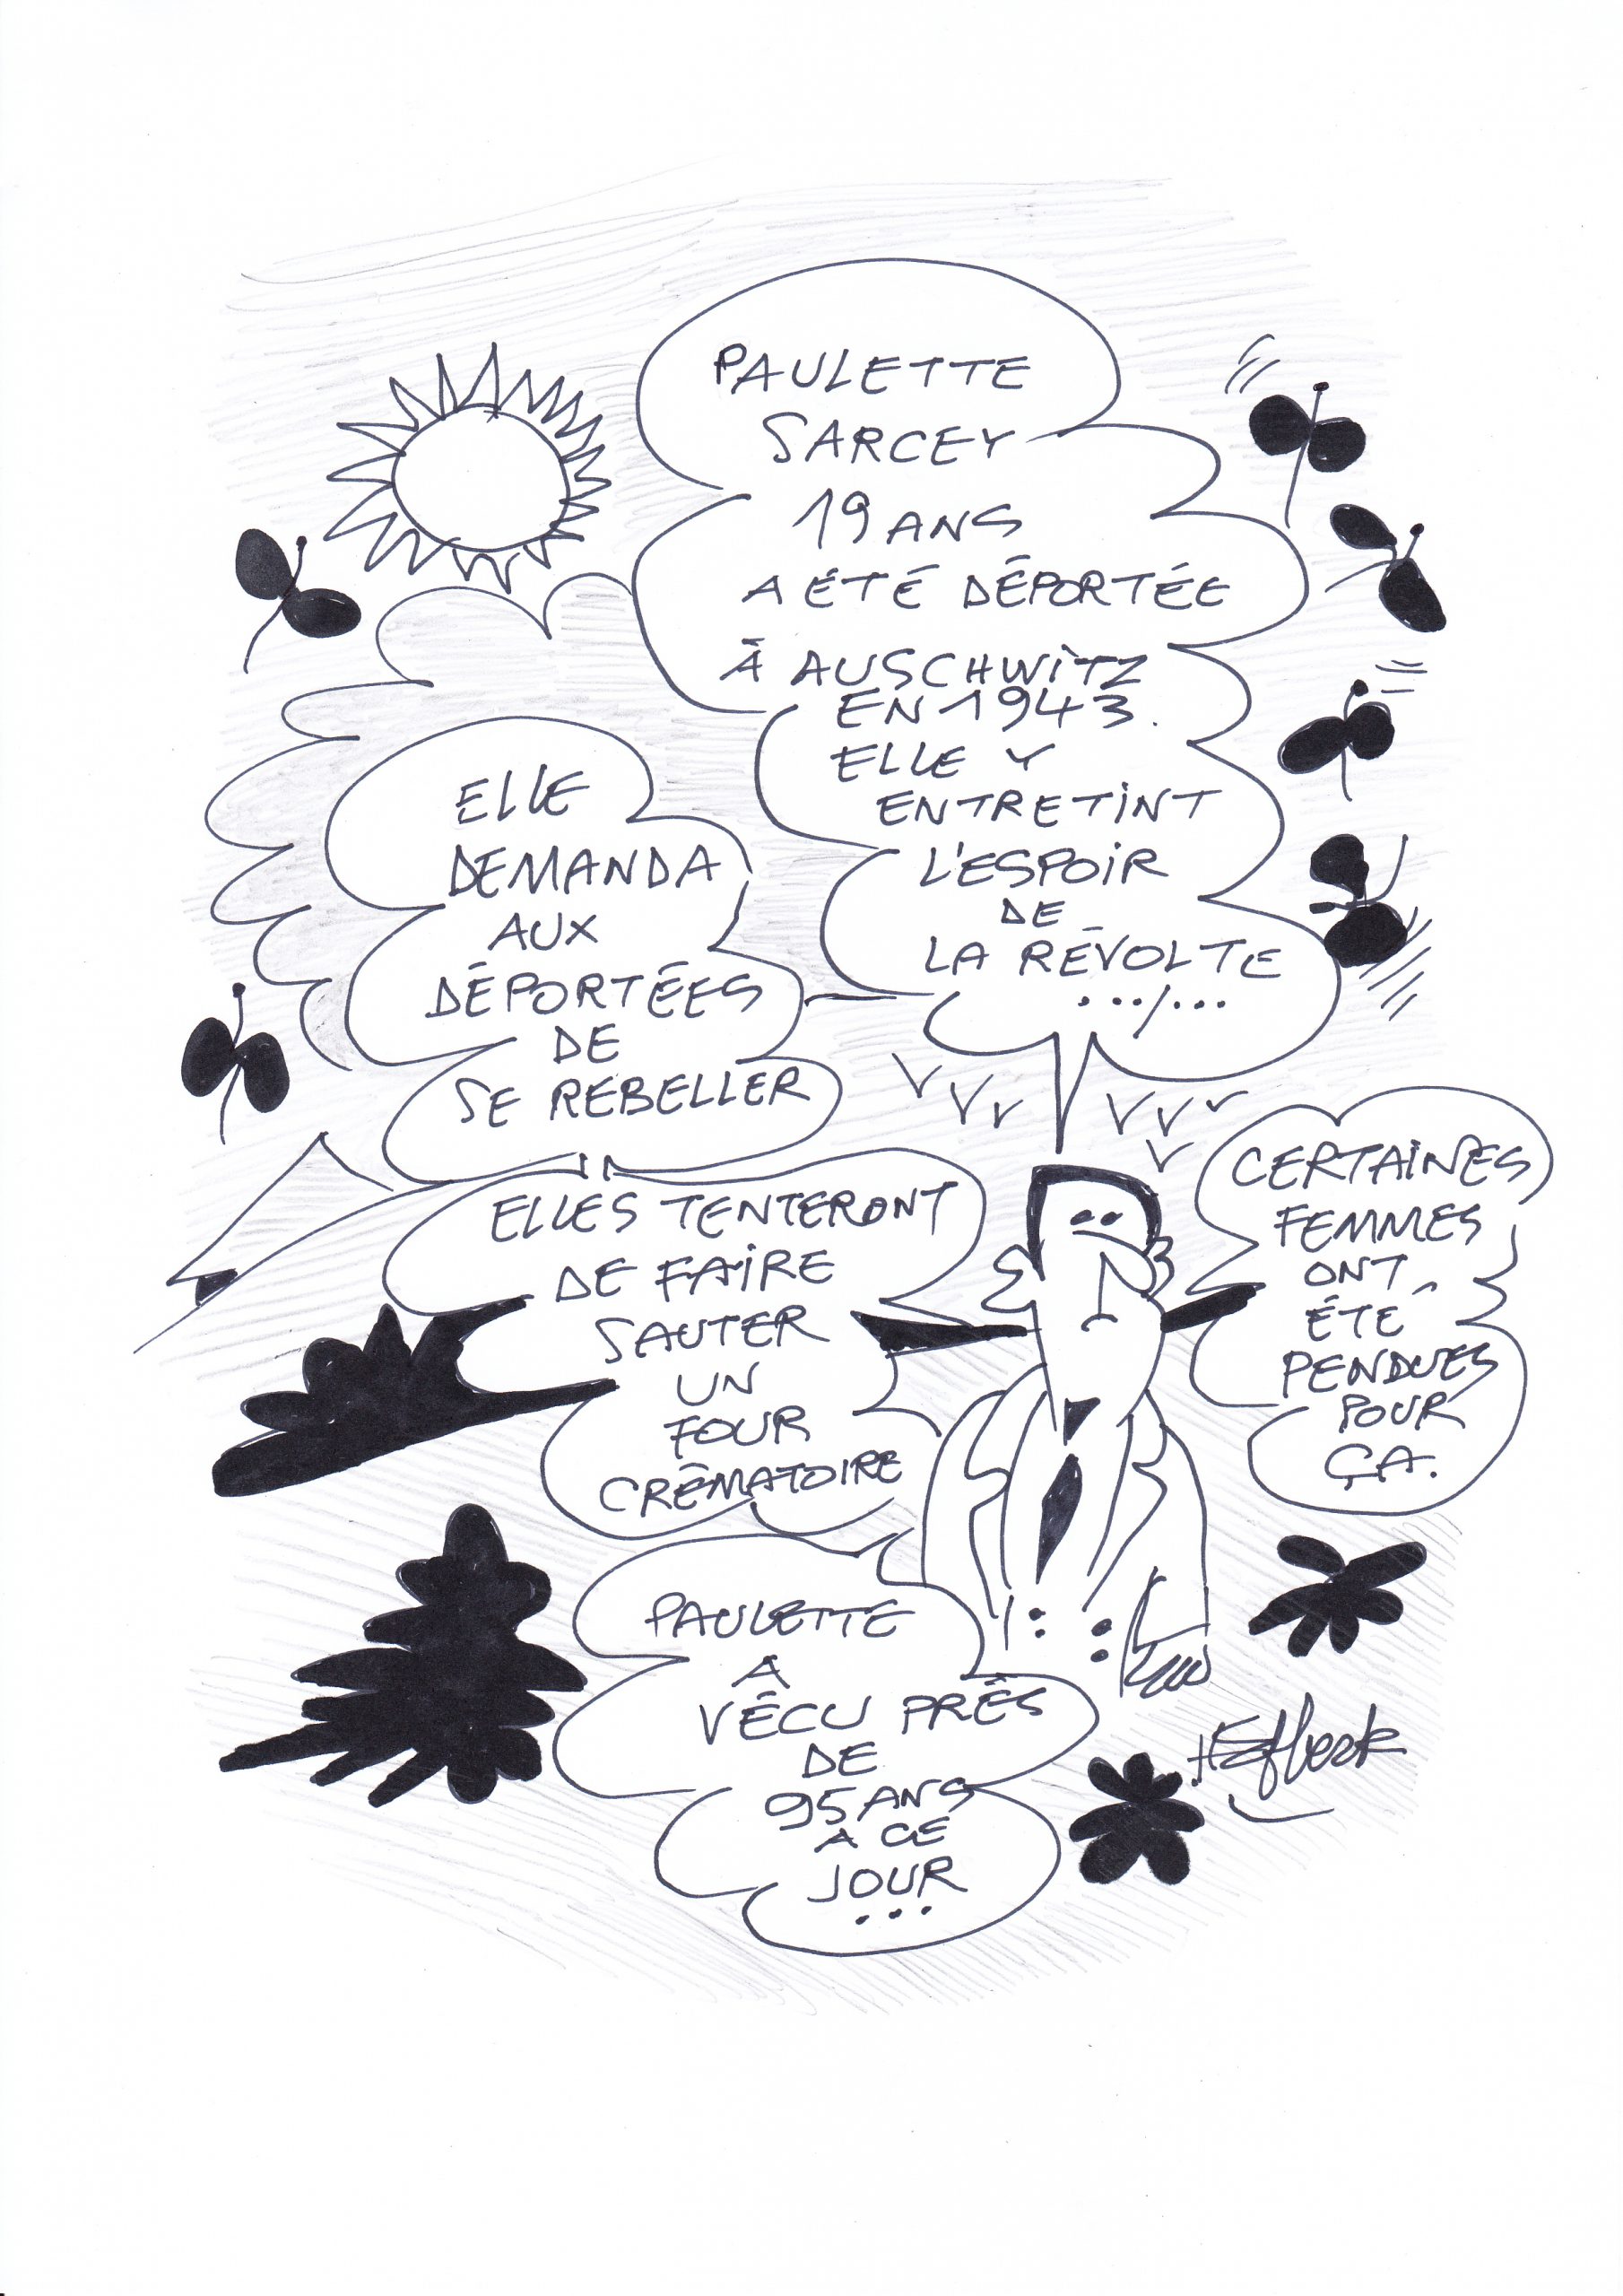 PAULETTE
SARCEY
19 ANS
A ÉTÉ DÉPORTÉE
À AUSCHWITZ
EN 1943.
ELLE Y
ENTRETINT
L'ESPOIR
DE
LA RÉVOLTE
.../...
ELLE
DEMANDA
AUX
DÉPORTÉES
DE
SE REBELLER
ELLES TENTERONT
DE FAIRE
SAUTER
UN
FOUR
CRÉMATOIRE
CERTAINES
FEMMES
ONT
ÉTÉ
PENDUES
POUR
ÇA.
PAULETTE
A
VÉCU PRÈS
DE
95 ANS
A CE
JOUR
...